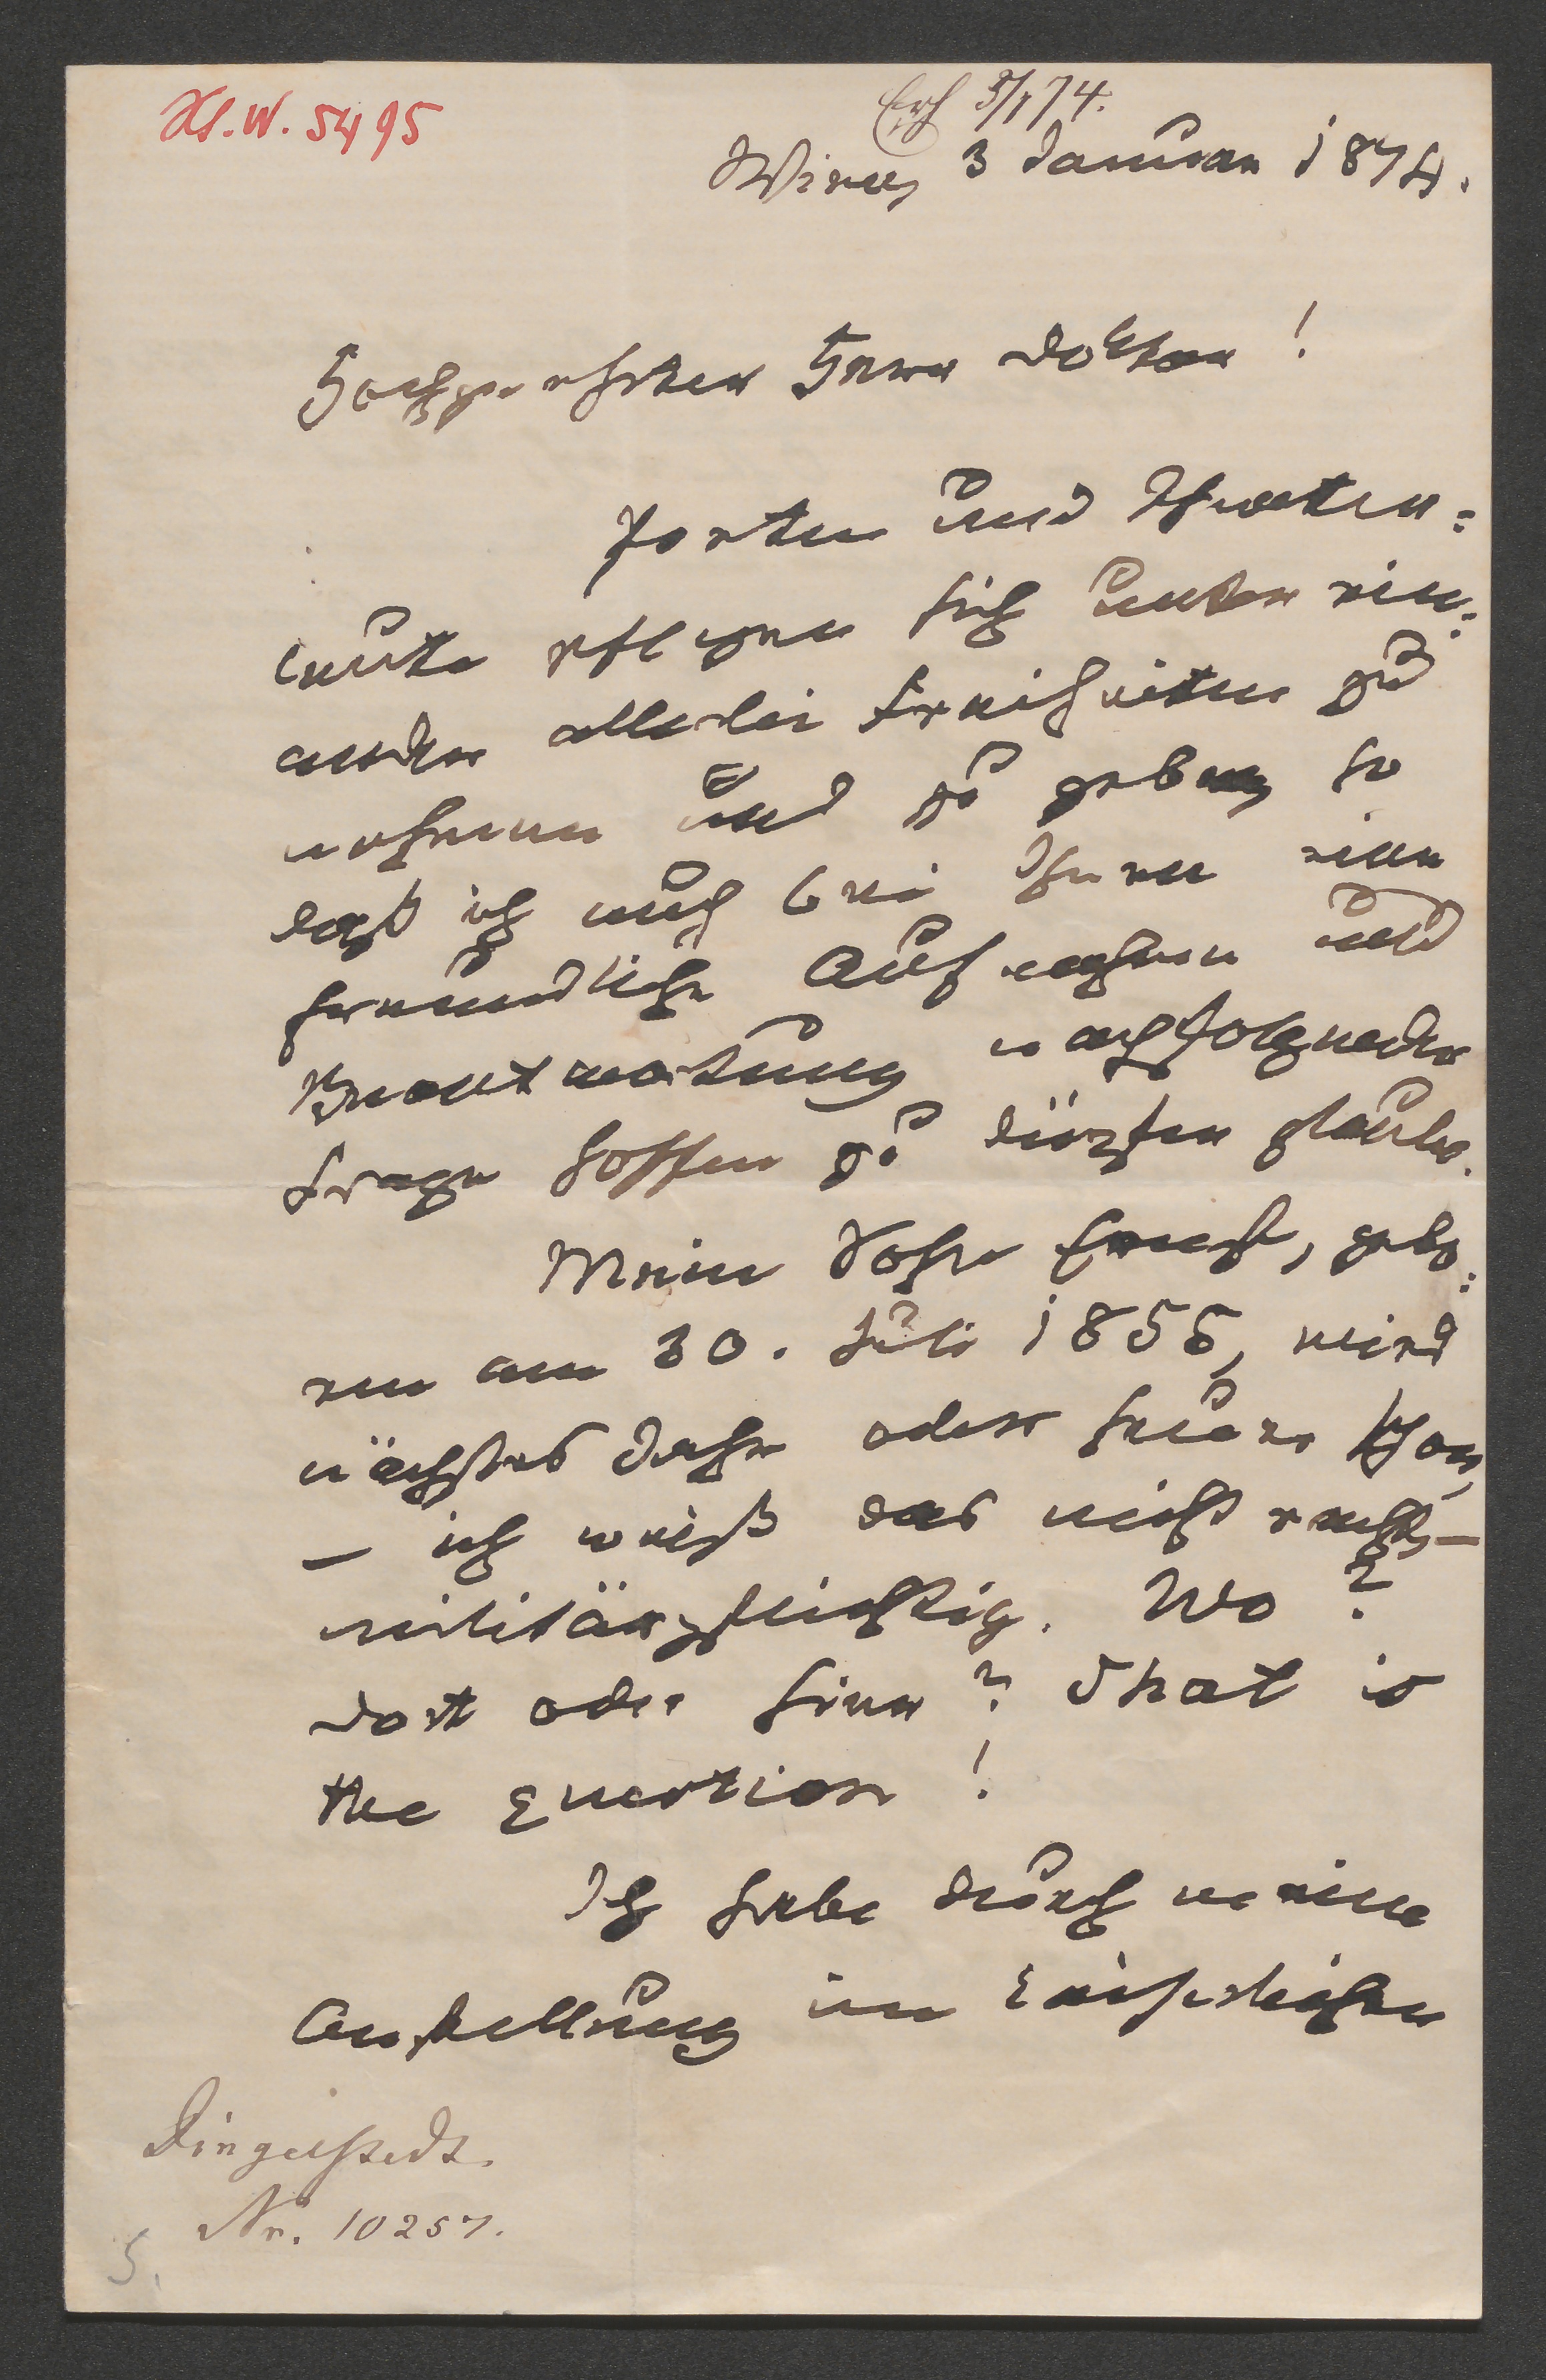 Hs.N. 5495
Erh 3/1 74.
Wien, 3 Januar 1874.
Hochgeehrter Herr Doktor!
Poeten und Theater=
leute pflegen sich unter ein=
ander allerlei Freiheiten zu
nehmen und zu geben, so
daß ich auch bei Ihnen eine
freundliche Aufnahme und
Beantwortung nachfolgender
Frage hoffen zu dürfen glaube.
Mein Sohn Ernst, gebo=
ren am 30. Juli 1855, wird
nächstes Jahr oder heuer schon,
– ich weiß das nicht recht, –
militärpflichtig. Wo?
Dort oder hier? That is
the question!
Ich habe durch meine
Anstellung im kaiserlichen
Dingelstedt.
Nr. 10257.
5.